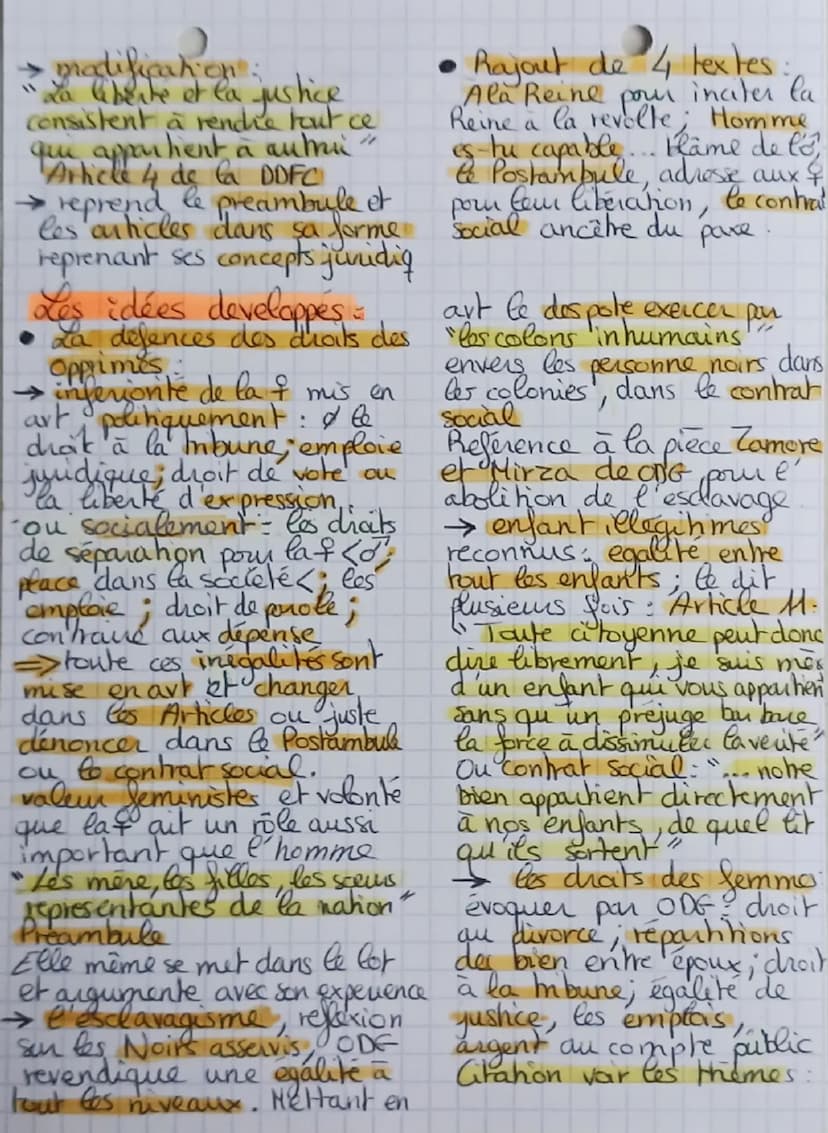 → modification :
"La liberté et la justice
consistent à rendre tout ce
qui appartient à autrui"
Article 4 de la DDFC
→ reprend le préambule et
les articles dans sa forme
reprenant ses concepts juridiq
• Rajout de 4 textes :
A la Reine pour inciter la
Reine à la revolte ; Homme
es-tu capable... blâme de l'♂,
le Postambule, adresse aux ♀
pour leur libération, le contrat
social ancêtre du pacs.
Les idées developpés :
• La défences des droits des
opprimés :
→ inferiorité de la ♀ mis en
avt, politiquement : ∅ le
droit à la tribune ; emploie
juridique ; droit de vote ou
la liberté d'expression,
ou socialement = les droits
de séparation pour la ♀ < ♂ ;
place dans la société < ; les
emploie ; droit de parole ;
contraire aux dépense
⇒ toute ces inégalités sont
mise en avt et changer
dans les Articles ou juste
dénoncer dans le Postambule
ou le contrat social.
valeur feministes et volonté
que la ♀ ait un rôle aussi
important que l'homme
"Les mère, les filles, les sœurs
représentantes de la nation"
Préambule
Elle même se met dans le lot
et argumente avec son expérience
→ l'esclavagisme, reflexion
sur les Noirs asservis, ODG
revendique une égalité à
tout les niveaux. Mettant en
avt le despote exercer par
"les colons inhumains"
envers les personne noirs dans
les colonies, dans le contrat
social
Reférence à la pièce Zamore
et Mirza de ODG pour l'
abolition de l'esclavage
→ enfant illegitimes
reconnus : egalité entre
tout les enfants ; le dit
plusieurs fois : Article 11.
"Toute citoyenne peut donc
dire librement, je suis mère
d'un enfant qui vous appartien
sans qu'un préjugé barbare
la force à dissimuler la verité"
Ou contrat social : "... notre
bien appartient directement
à nos enfants, de quel lit
qu'ils sortent"
→ les droits des femmes
évoquer par ODG : droit
au divorce ; répartitions
des bien entre époux ; droit
à la tribune ; égalité de
justice, les emplois,
argent au compte public
Citation voir les thèmes :